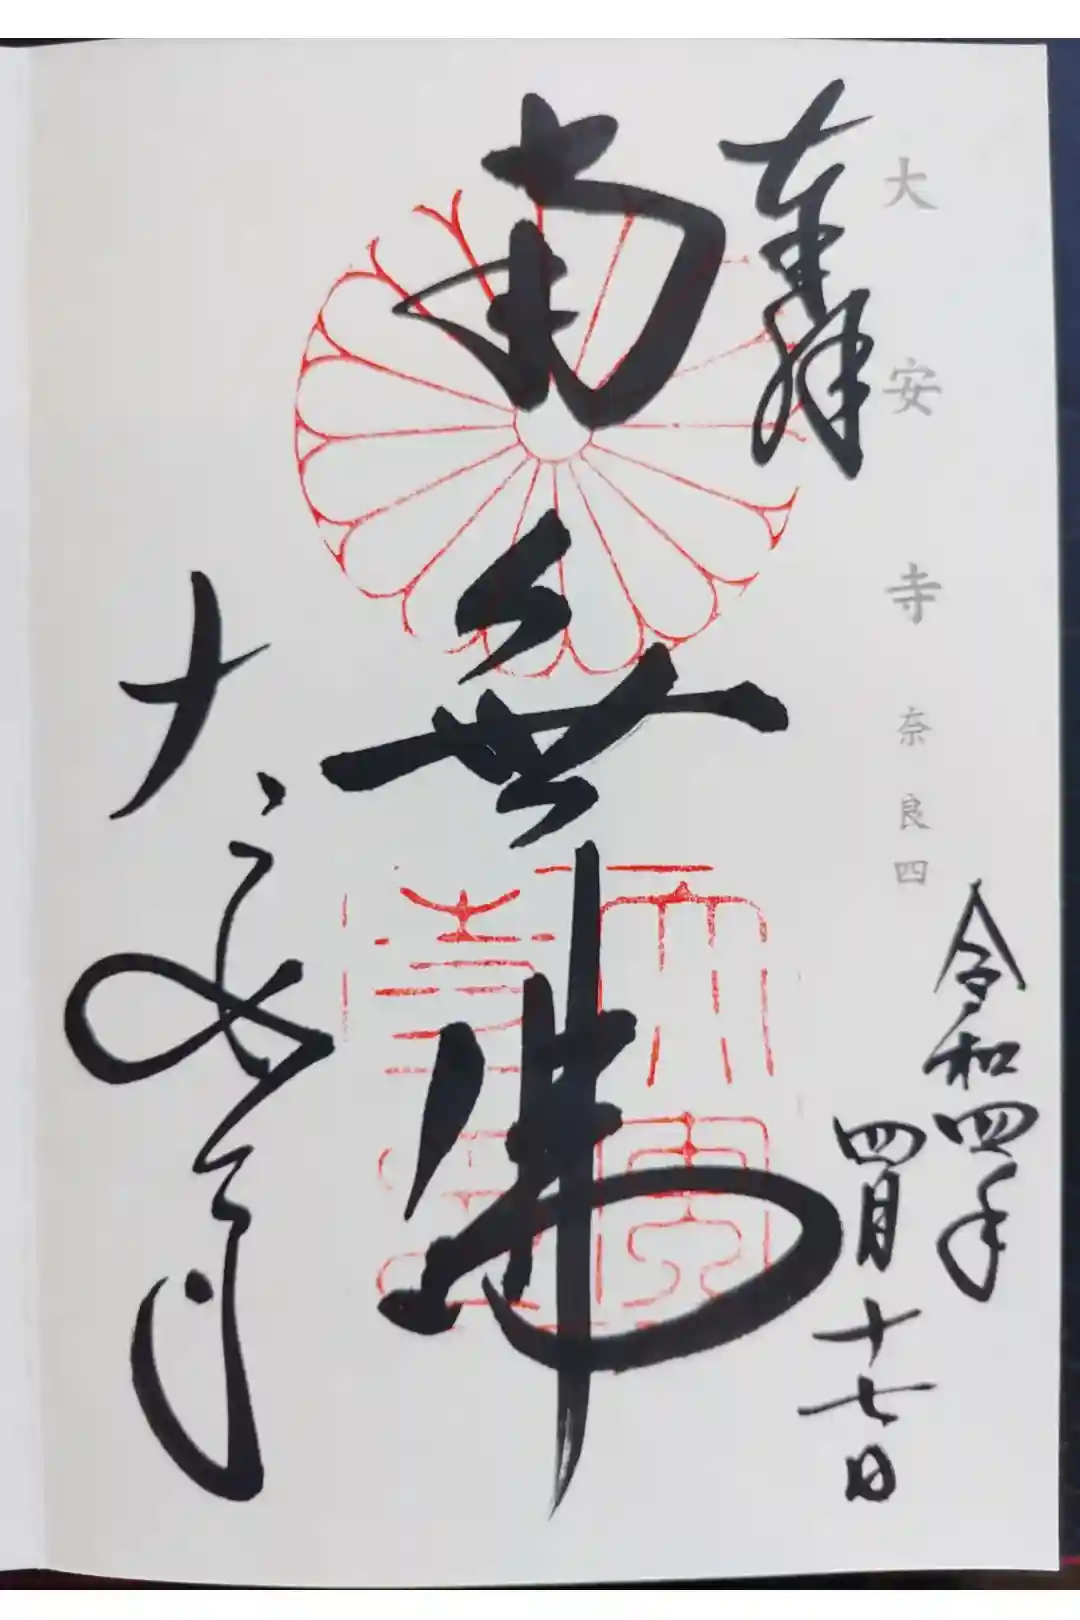 大安寺 奈良四
奉拝
令和四年
四月十七日
南無佛
大安寺
大安寺